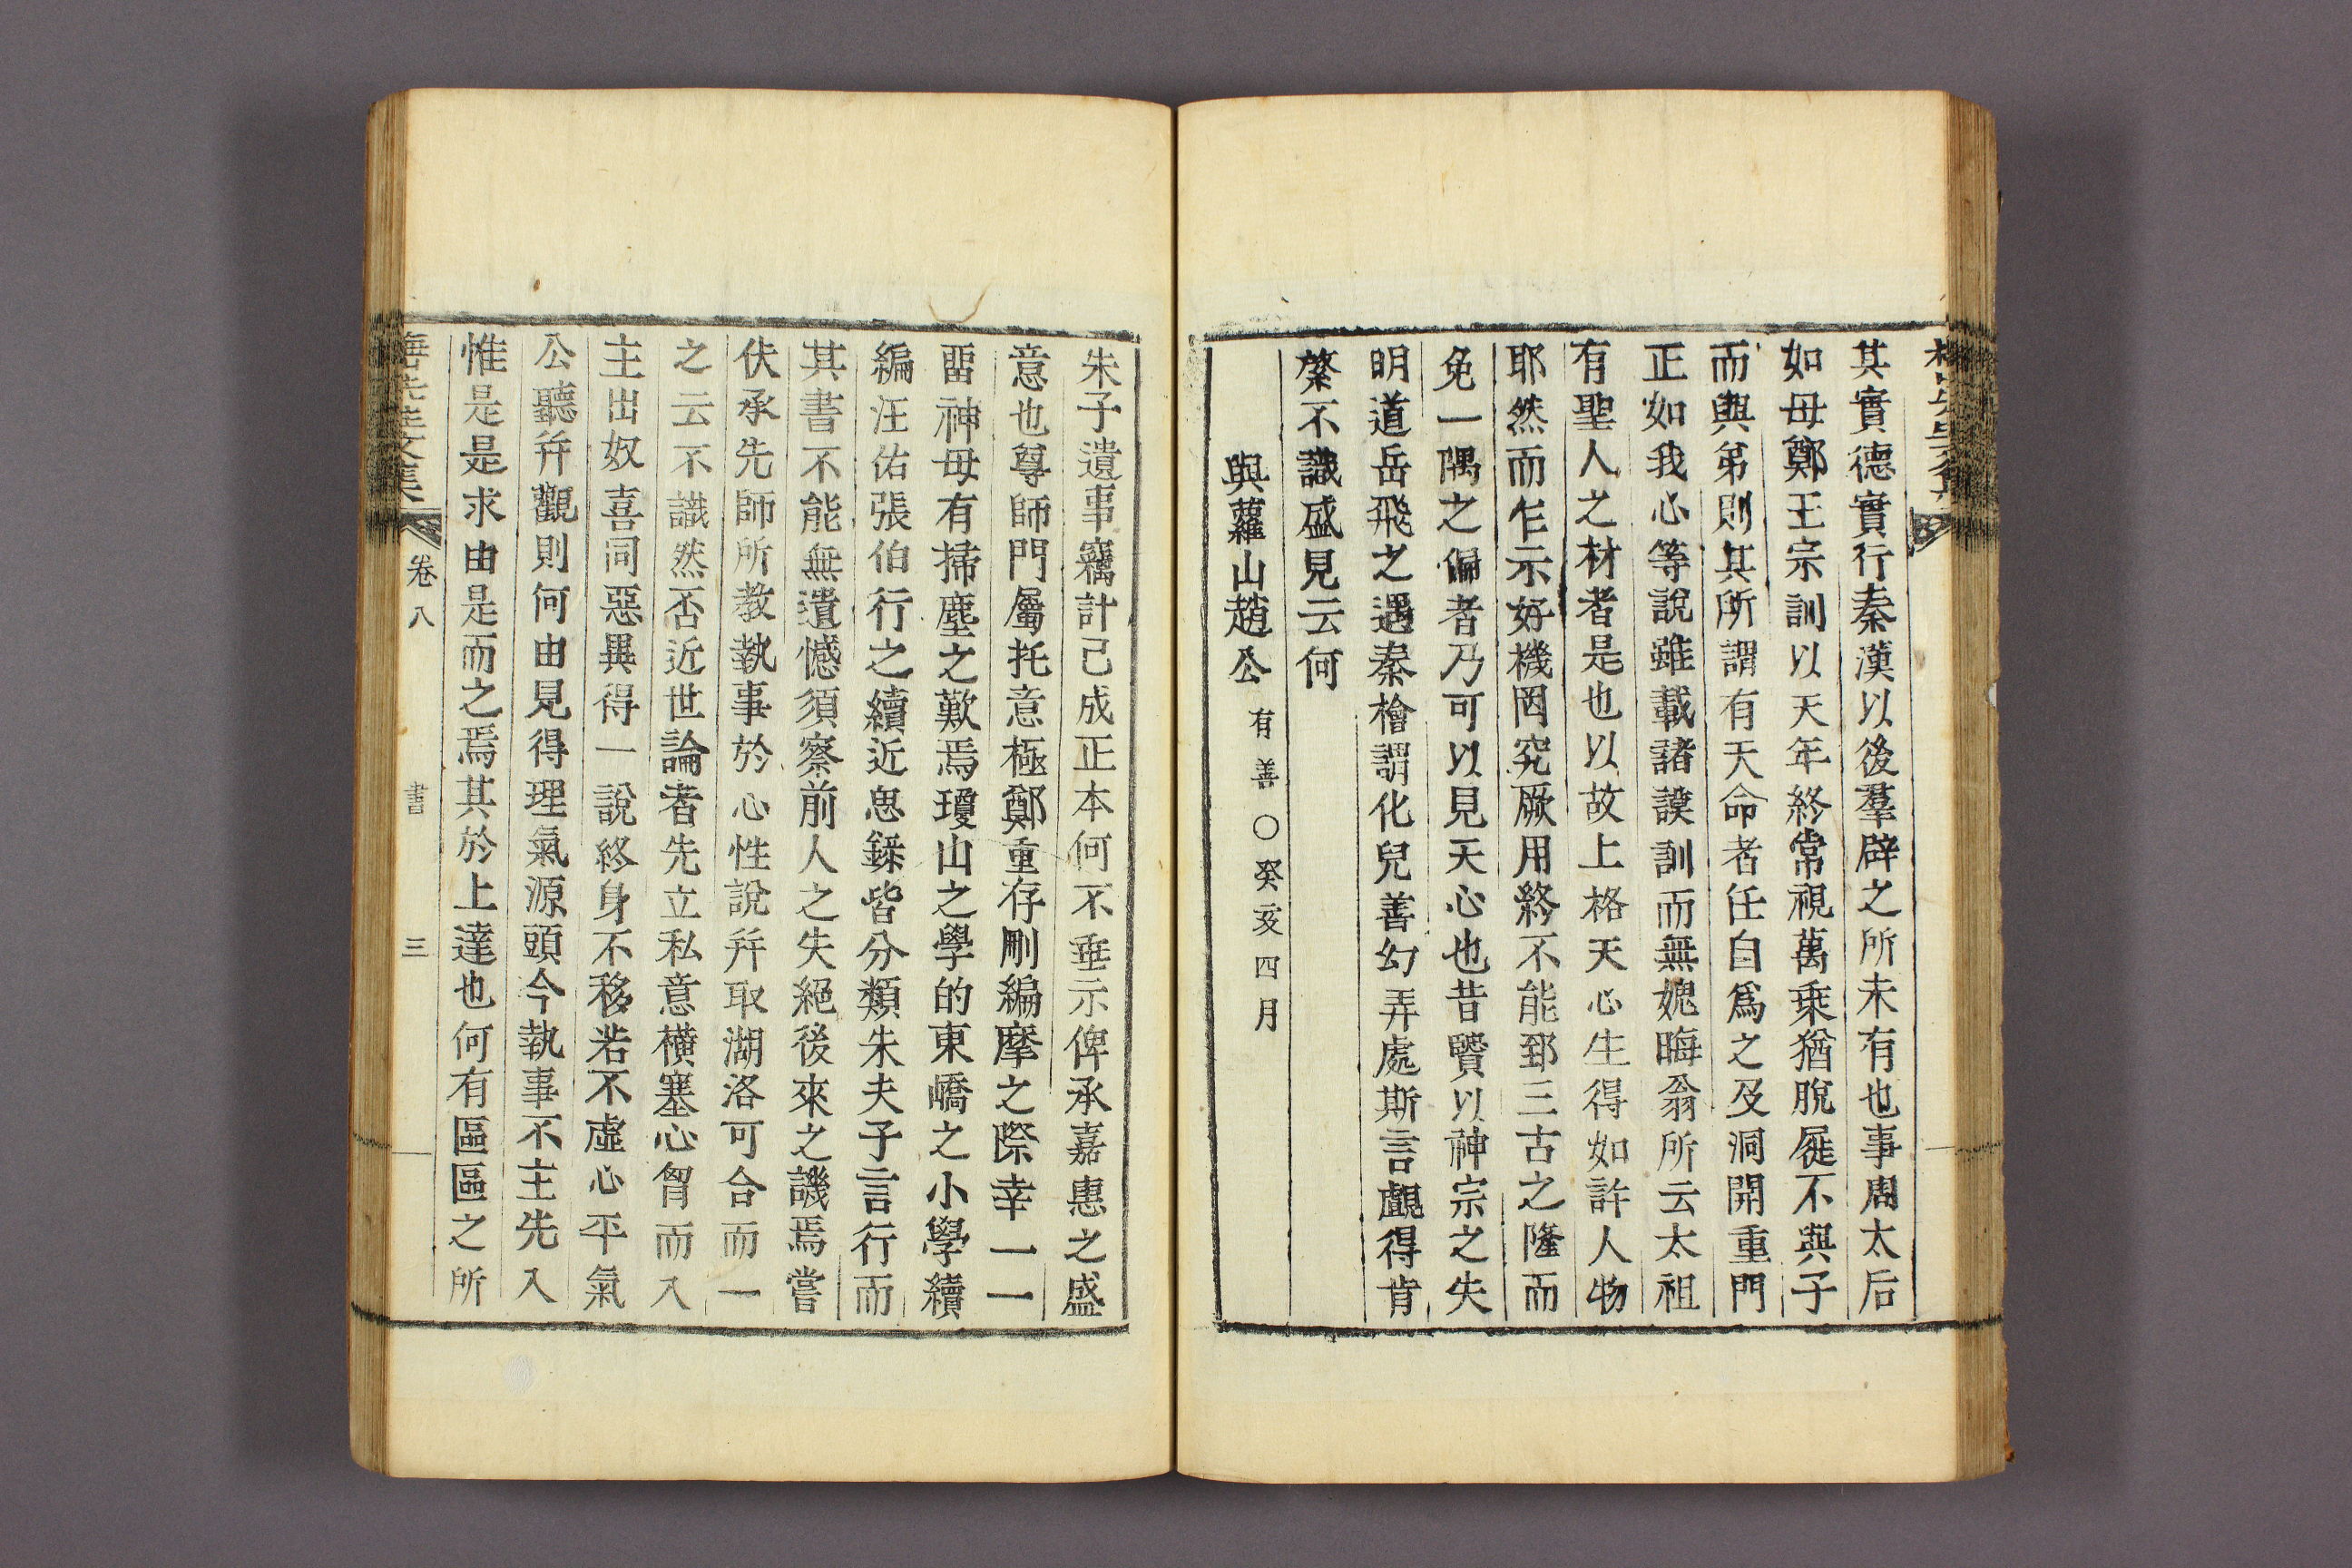 其實德實行秦漢以後羣辟之所未有也事周太后
如母鄭王宗訓以天年終常視萬乘猶脫屣不與子
而與弟則其所謂有天命者任自爲之及洞開重門
正如我心等說雖載諸謨訓而無媿晦翁所云太祖
有聖人之材者是也以故上格天心生得如許人物
耶然而乍示好機罔究厥用終不能郅三古之隆而
免一隅之偏者乃可以見天心也昔賢以神宗之失
明道岳飛之遇秦檜謂化兒善幻弄處斯言覰得肯
綮不識盛見云何
與蘿山趙公有善○癸亥四月
朱子遺事竊計已成正本何不垂示俾承嘉惠之盛
意也尊師門屬托意極鄭重存刪編摩之際幸一一
畱神毋有掃塵之歎焉瓊山之學的東嶠之小學續
編汪佑張伯行之續近思錄皆分類朱夫子言行而
其書不能無遺憾須察前人之失絕後來之譏焉嘗
伏承先師所敎執事於心性說幷取湖洛可合而一
之云不識然否近世論者先立私意橫塞心胷而入
主出奴喜同惡異得一說終身不移若不虛心平氣
公聽幷觀則何由見得理氣源頭今執事不主先入
惟是是求由是而之焉其於上達也何有區區之所
卷八 書 三